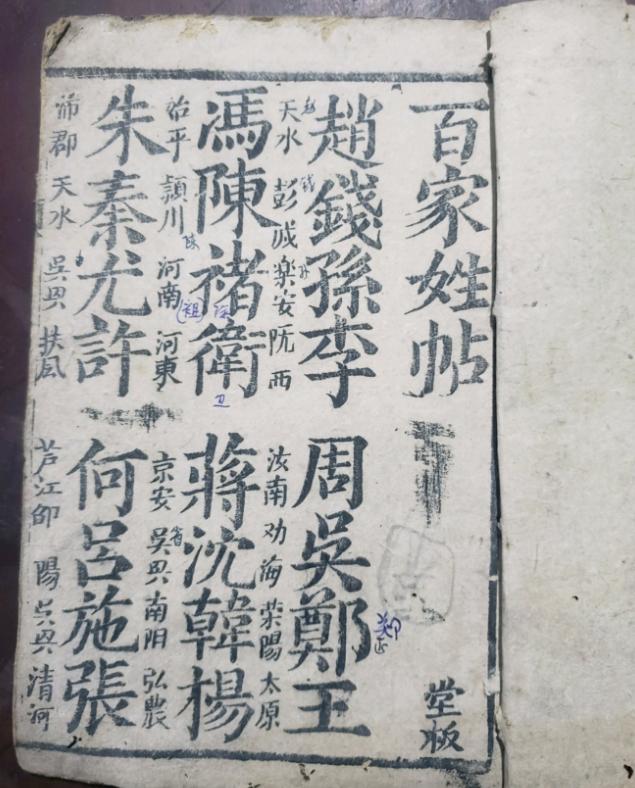 百家姓帖
堂板
趙錢孫李
天水 彭城 楽安 阮西
周吳鄭王
汝南 劝海 荣陽 太原
郑
馮陳褚衛
始平 頴川 河南 河東
卫
蔣沈韓楊
京安 吳興 南阳 弘農
朱秦尤許
沛郡 天水 吳興 扶風
何呂施張
芦江郡 陽 吳興 清河